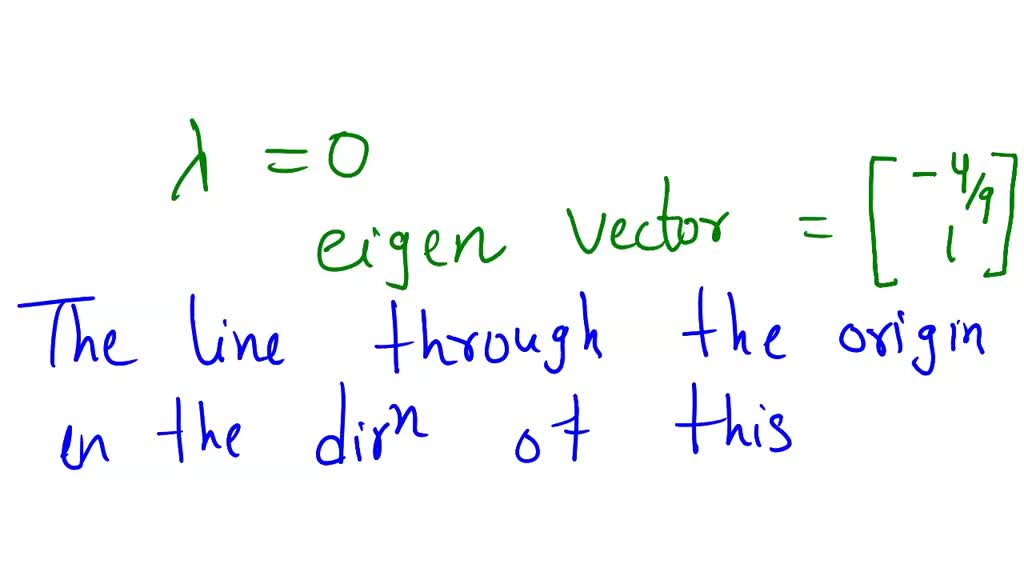 λ = 0
eigen vector = [ -4/9
1 ]
The line through the origin
in the dirⁿ of this